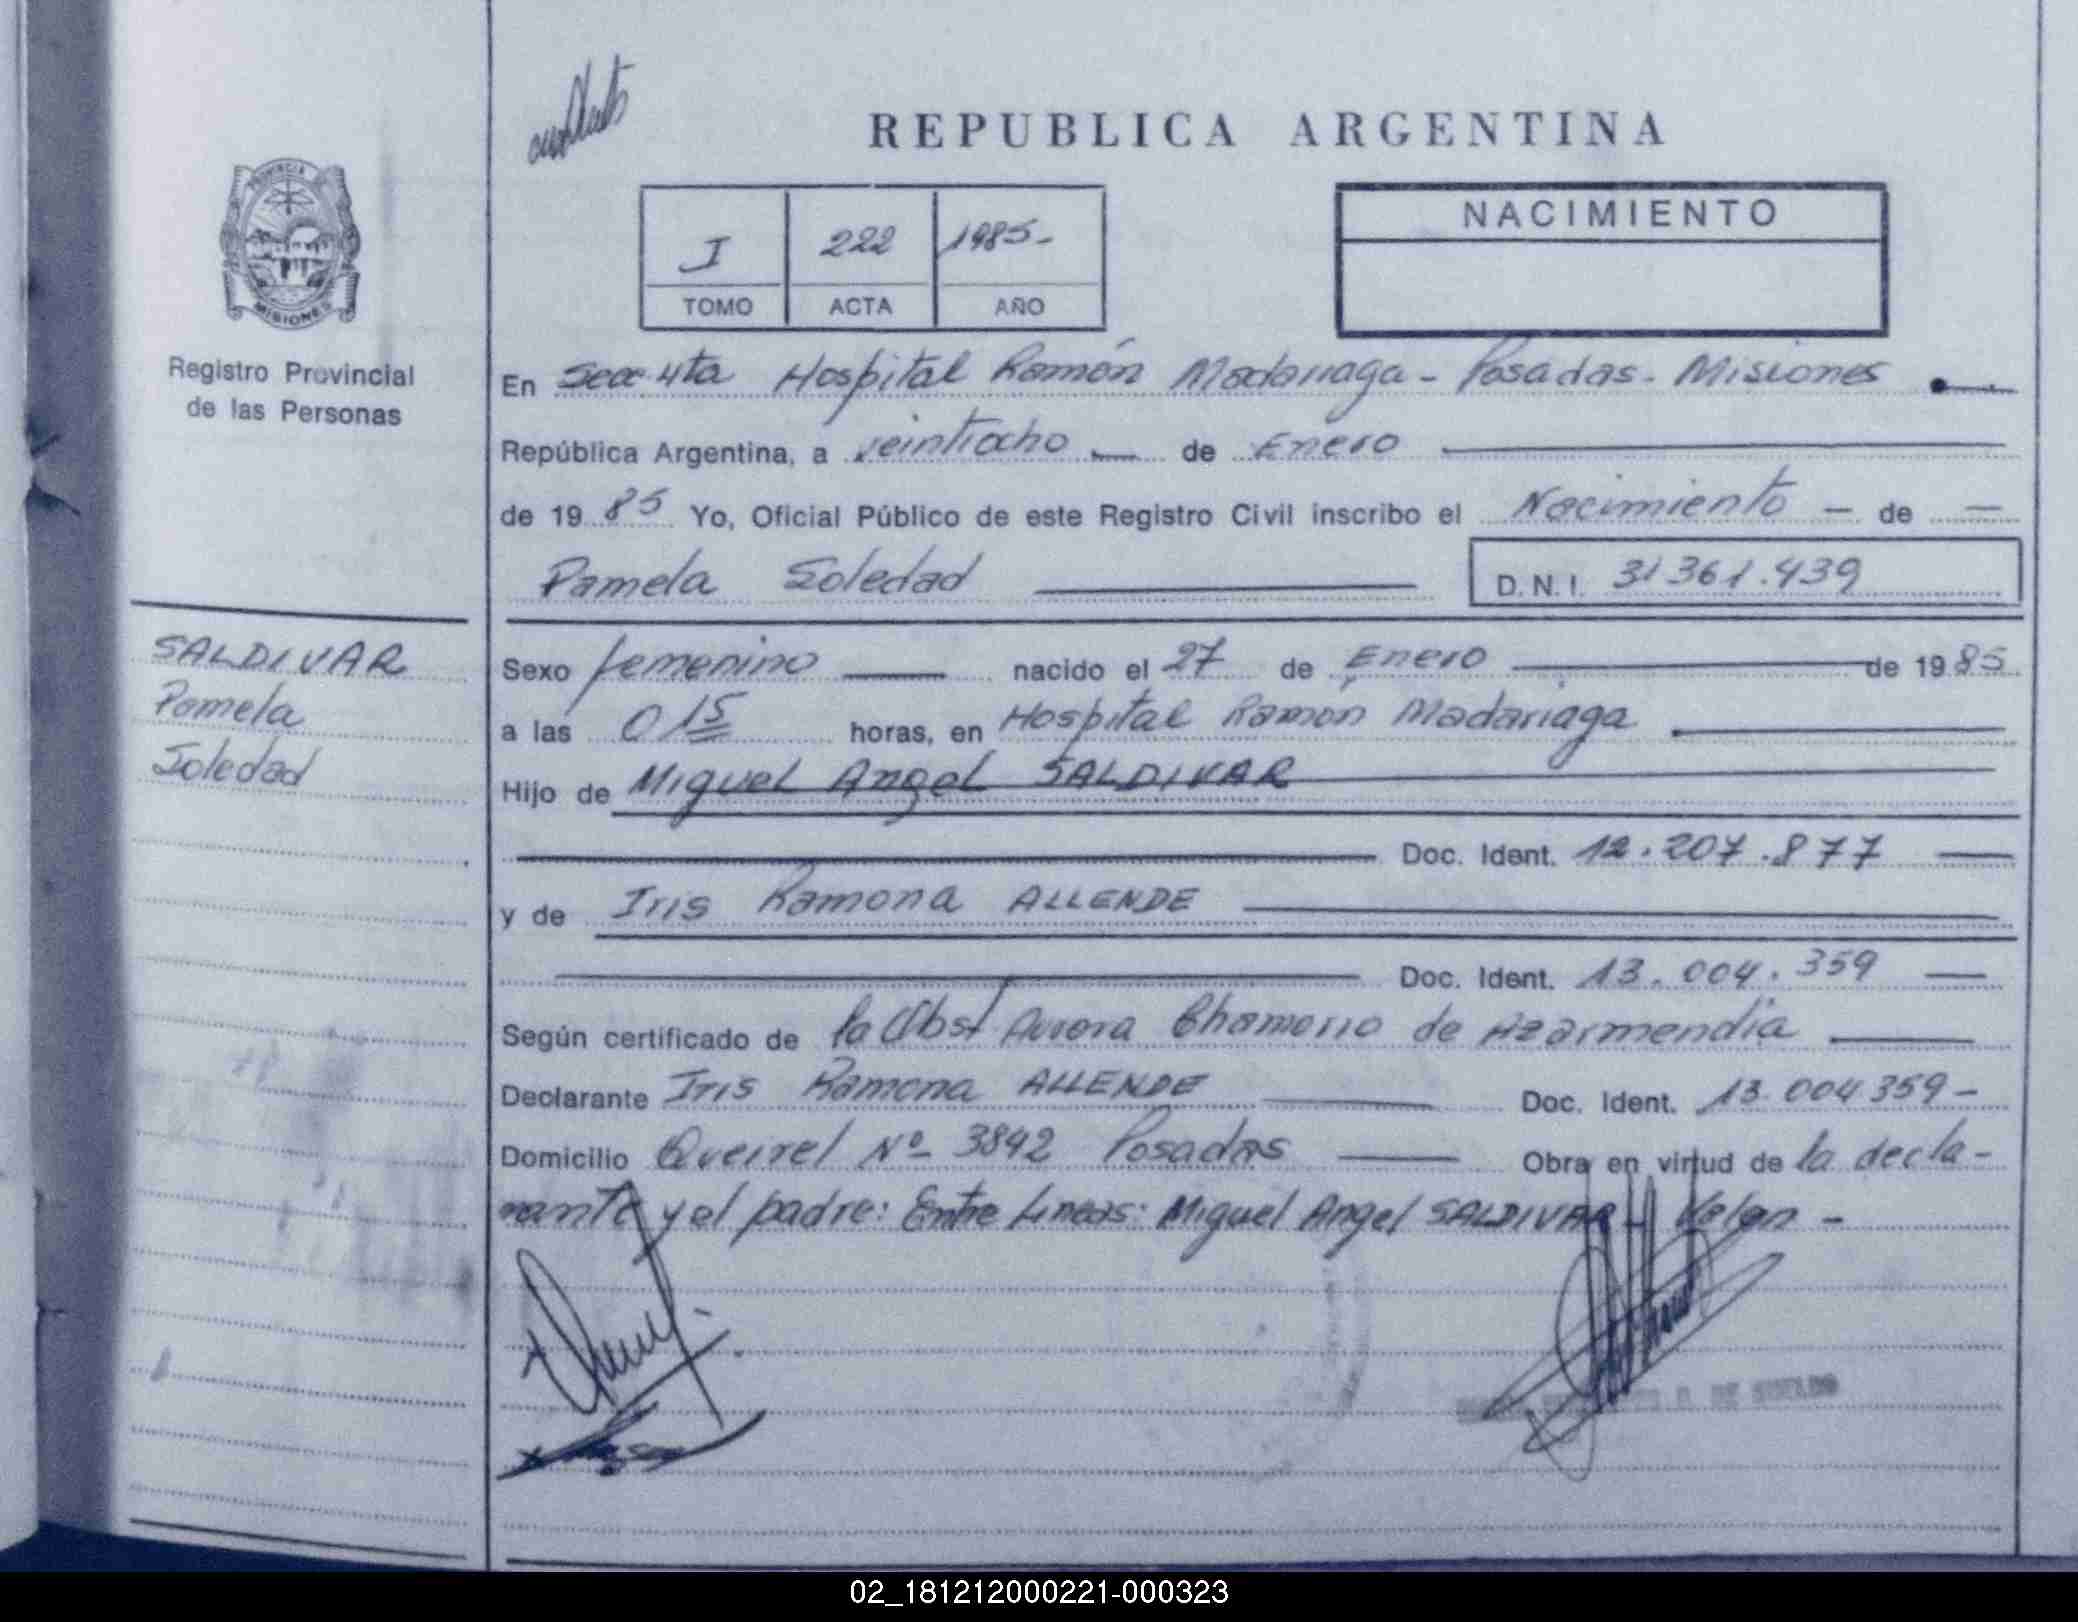 REPUBLICA ARGENTINA
PROVINCIA
MISIONES
Registro Provincial
de las Personas
I 222 1985-
TOMO ACTA AÑO
NACIMIENTO
En Secc 4ta Hospital Ramón Madariaga - Posadas - Misiones
República Argentina, a veintiocho de Enero
de 1985 Yo, Oficial Público de este Registro Civil inscribo el Nacimiento - de -
Pamela Soledad
D.N.I. 31 361.439
SALDIVAR
Pamela
Soledad
Sexo femenino nacido el 27 de Enero de 1985
a las 0 15 horas, en Hospital Ramón Madariaga
Hijo de Miguel Angel SALDIVAR
Doc. Ident. 12.207.877
y de Iris Ramona ALLENDE
Doc. Ident. 13.004.359
Según certificado de la Obst Aurora Chamorro de Azarmendia
Declarante Iris Ramona ALLENDE Doc. Ident. 13.004 359-
Domicilio Queirel Nº 3842 Posadas Obra en virtud de la decla-
rante y el padre: Entre Lineas: Miguel Angel SALDIVAR - Valen -
DE SUELDO
02_181212000221-000323